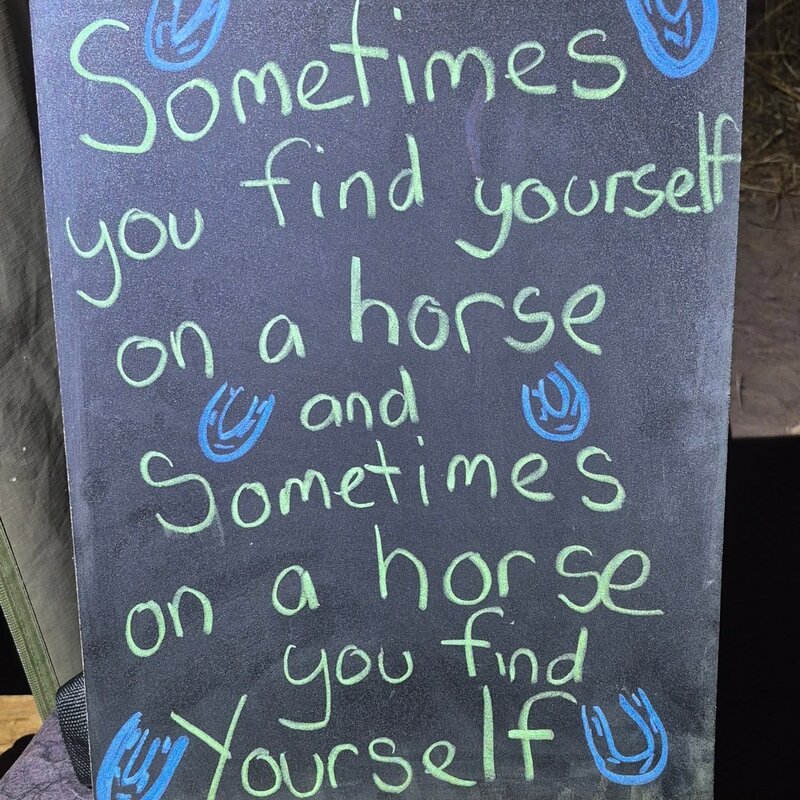 Sometimes
you find yourself
on a horse
and
Sometimes
on a horse
you find
Yourself